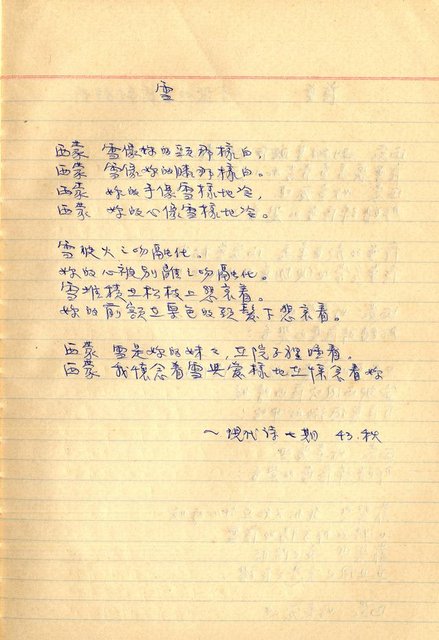 雪
西蒙 雪像妳的頸那樣白,
西蒙 雪像妳的膝那樣白。
西蒙 妳的手像雪樣地冷,
西蒙 妳的心像雪樣地冷。
雪被火之吻融化。
妳的心被別離之吻融化。
雪堆積在松枝上悲哀着。
妳的前額在栗色的頭髮下悲哀着。
西蒙 雪是妳的妹々,在院子裡睡着。
西蒙 我懷念着雪與雲樣地在懷念着妳
~現代詩七期 43.秋